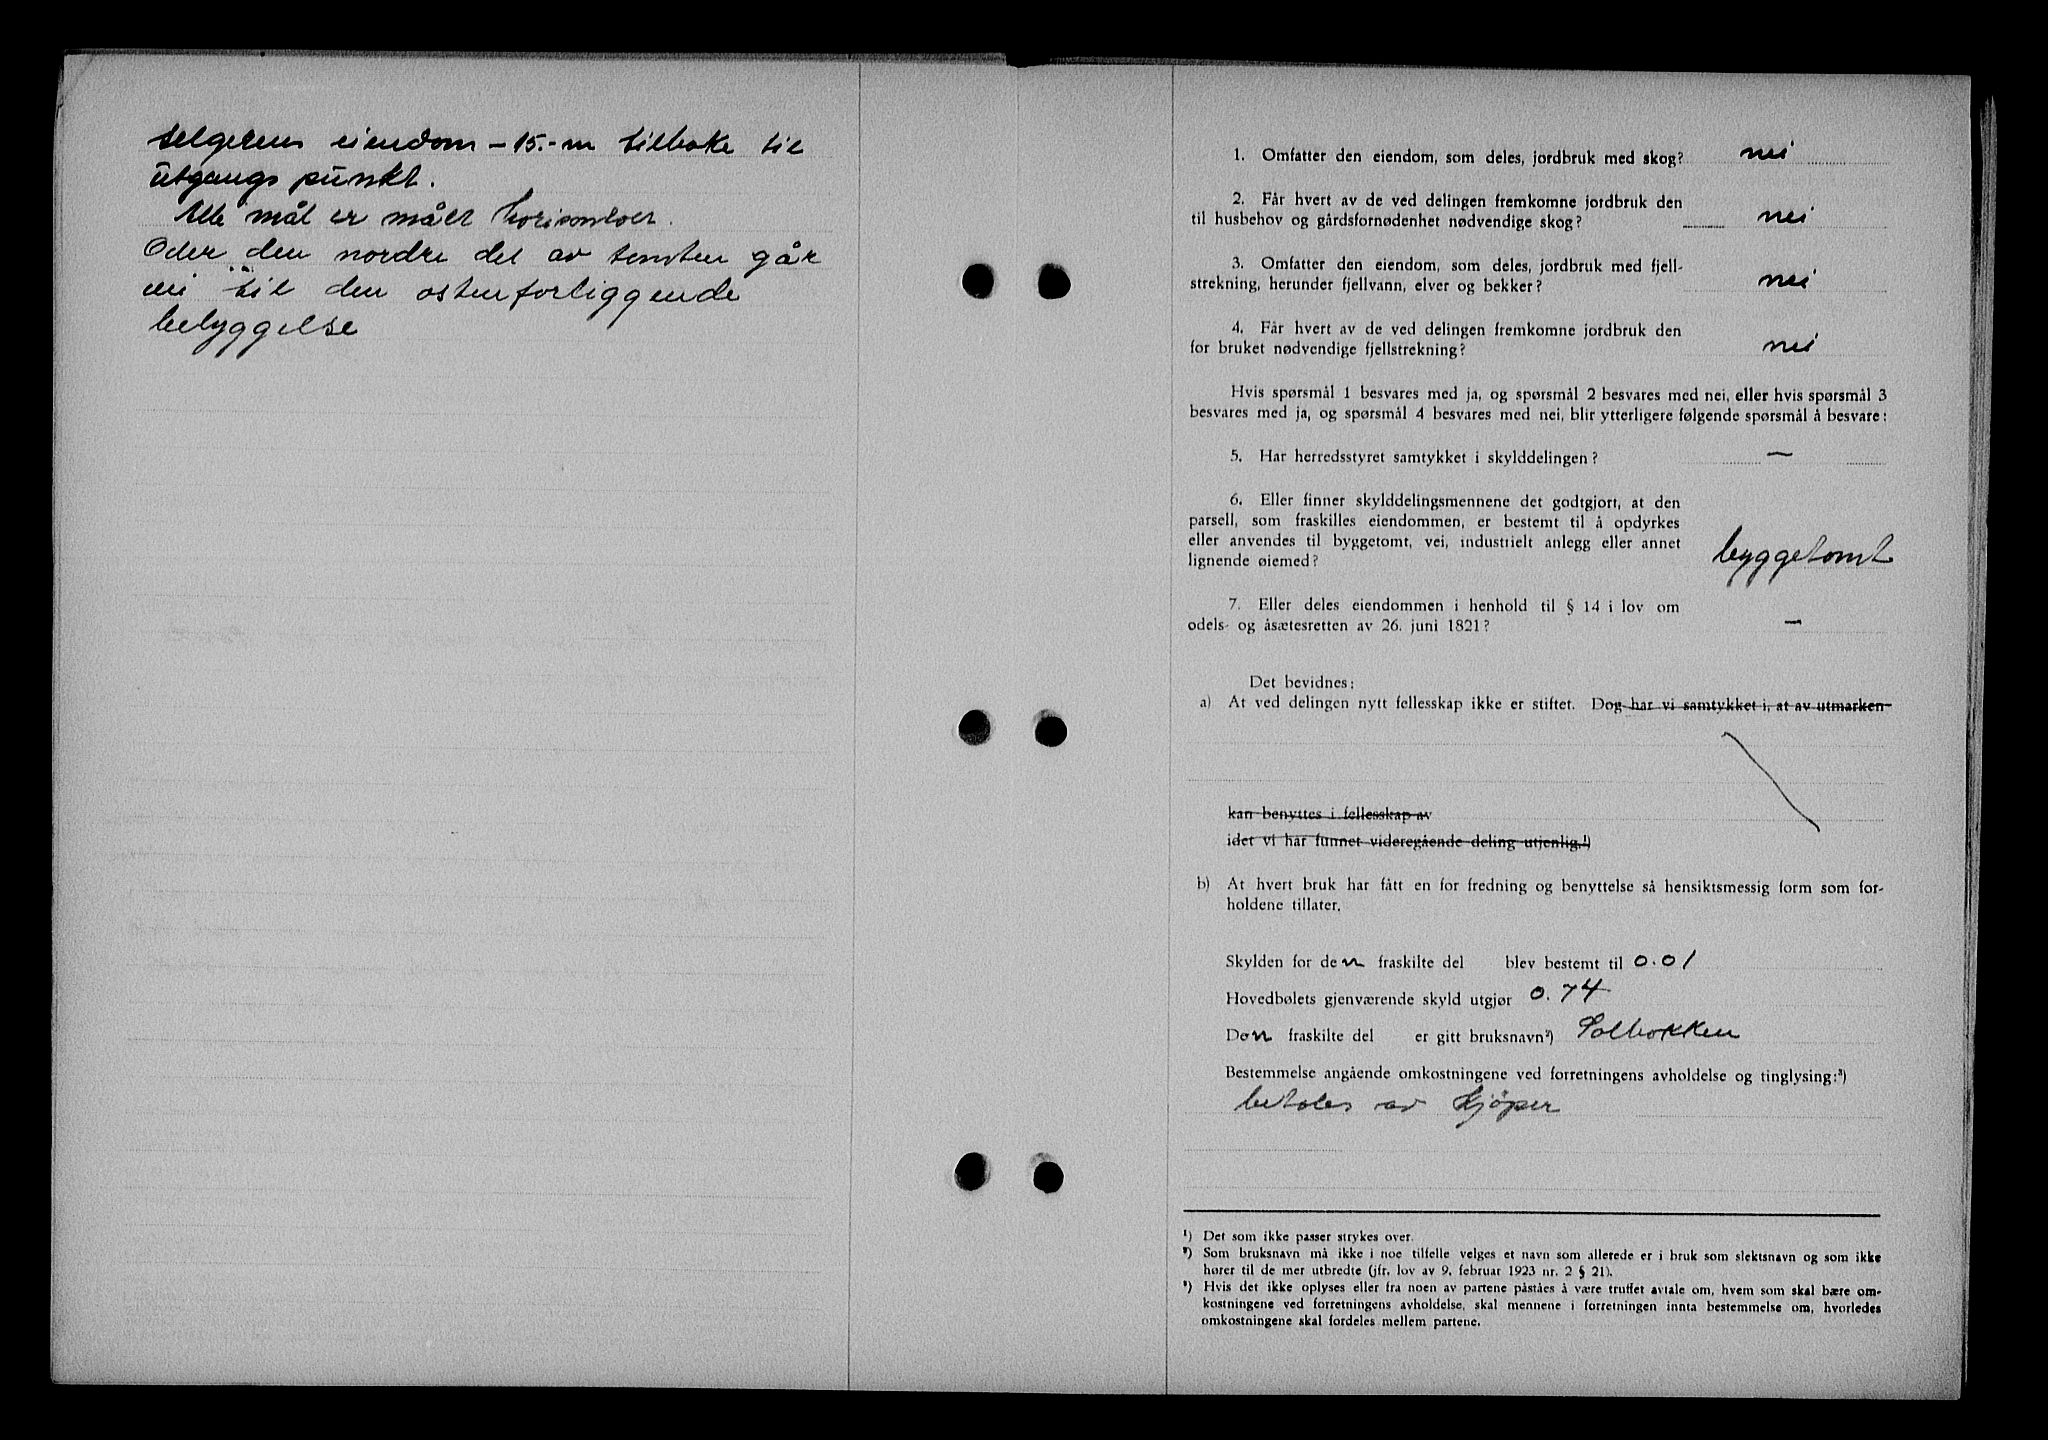 selgerens eiendom - 15.- m tilbake til
utgangs punkt.
Alle mål er målt horisontalt.
Over den nordre del av tomten går
vei til den ostenforliggende
bebyggelse
1. Omfatter den eiendom, som deles, jordbruk med skog? nei
2. Får hvert av de ved delingen fremkomne jordbruk den
til husbehov og gårdsfornødenhet nødvendige skog? nei
3. Omfatter den eiendom, som deles, jordbruk med fjell-
strekning, herunder fjellvann, elver og bekker? nei
4. Får hvert av de ved delingen fremkomne jordbruk den
for bruket nødvendige fjellstrekning? nei
Hvis spørsmål 1 besvares med ja, og spørsmål 2 besvares med nei, eller hvis spørsmål 3
besvares med ja, og spørsmål 4 besvares med nei, blir ytterligere følgende spørsmål å besvare:
5. Har herredsstyret samtykket i skylddelingen? —
6. Eller finner skylddelingsmennene det godtgjort, at den
parsell, som fraskilles eiendommen, er bestemt til å opdyrkes
eller anvendes til byggetomt, vei, industrielt anlegg eller annet
lignende øiemed? byggetomt
7. Eller deles eiendommen i henhold til § 14 i lov om
odels- og åsætesretten av 26. juni 1821? —
Det bevidnes:
a) At ved delingen nytt fellesskap ikke er stiftet. Dog har vi samtykket i, at av utmarken
kan benyttes i fellesskap av
idet vi har funnet videregående deling utjenlig.¹)
b) At hvert bruk har fått en for fredning og benyttelse så hensiktsmessig form som for-
holdene tillater.
Skylden for den fraskilte del blev bestemt til 0.01
Hovedbølets gjenværende skyld utgjør 0.74
Den fraskilte del er gitt bruksnavn²) Solbakken
Bestemmelse angående omkostningene ved forretningens avholdelse og tinglysing:³)
betales av Kjöper
¹) Det som ikke passer strykes over.
²) Som bruksnavn må ikke i noe tilfelle velges et navn som allerede er i bruk som slektsnavn og som ikke
hører til de mer utbredte (jfr. lov av 9. februar 1923 nr. 2 § 21).
³) Hvis det ikke oplyses eller fra noen av partene påståes å være truffet avtale om, hvem som skal bære om-
kostningene ved forretningens avholdelse, skal mennene i forretningen innta bestemmelse om, hvorledes
omkostningene skal fordeles mellem partene.